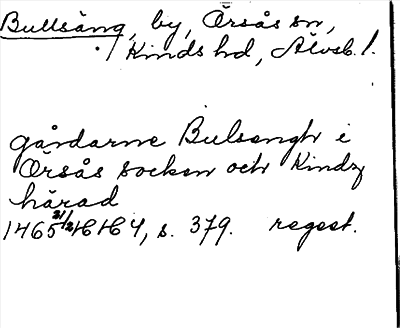 Bullsäng, by, Örsås sn,
Kinds hd, Älvsb. l.
gårdarne Bulsengh i
Örsås socken och Kindz
härad
1465 21/2 HH 4, s. 379. regest.